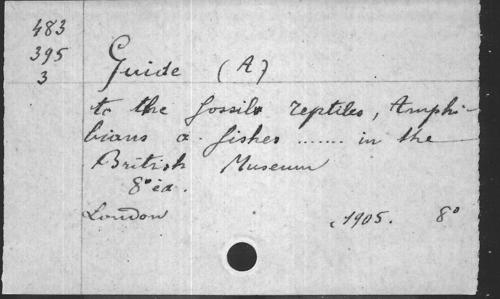 483
395
3
Guide (A)
to the fossils reptiles, Amphi-
bians a. fishes ....... in the
British Museum
8° éd.
London , 1905. 8°